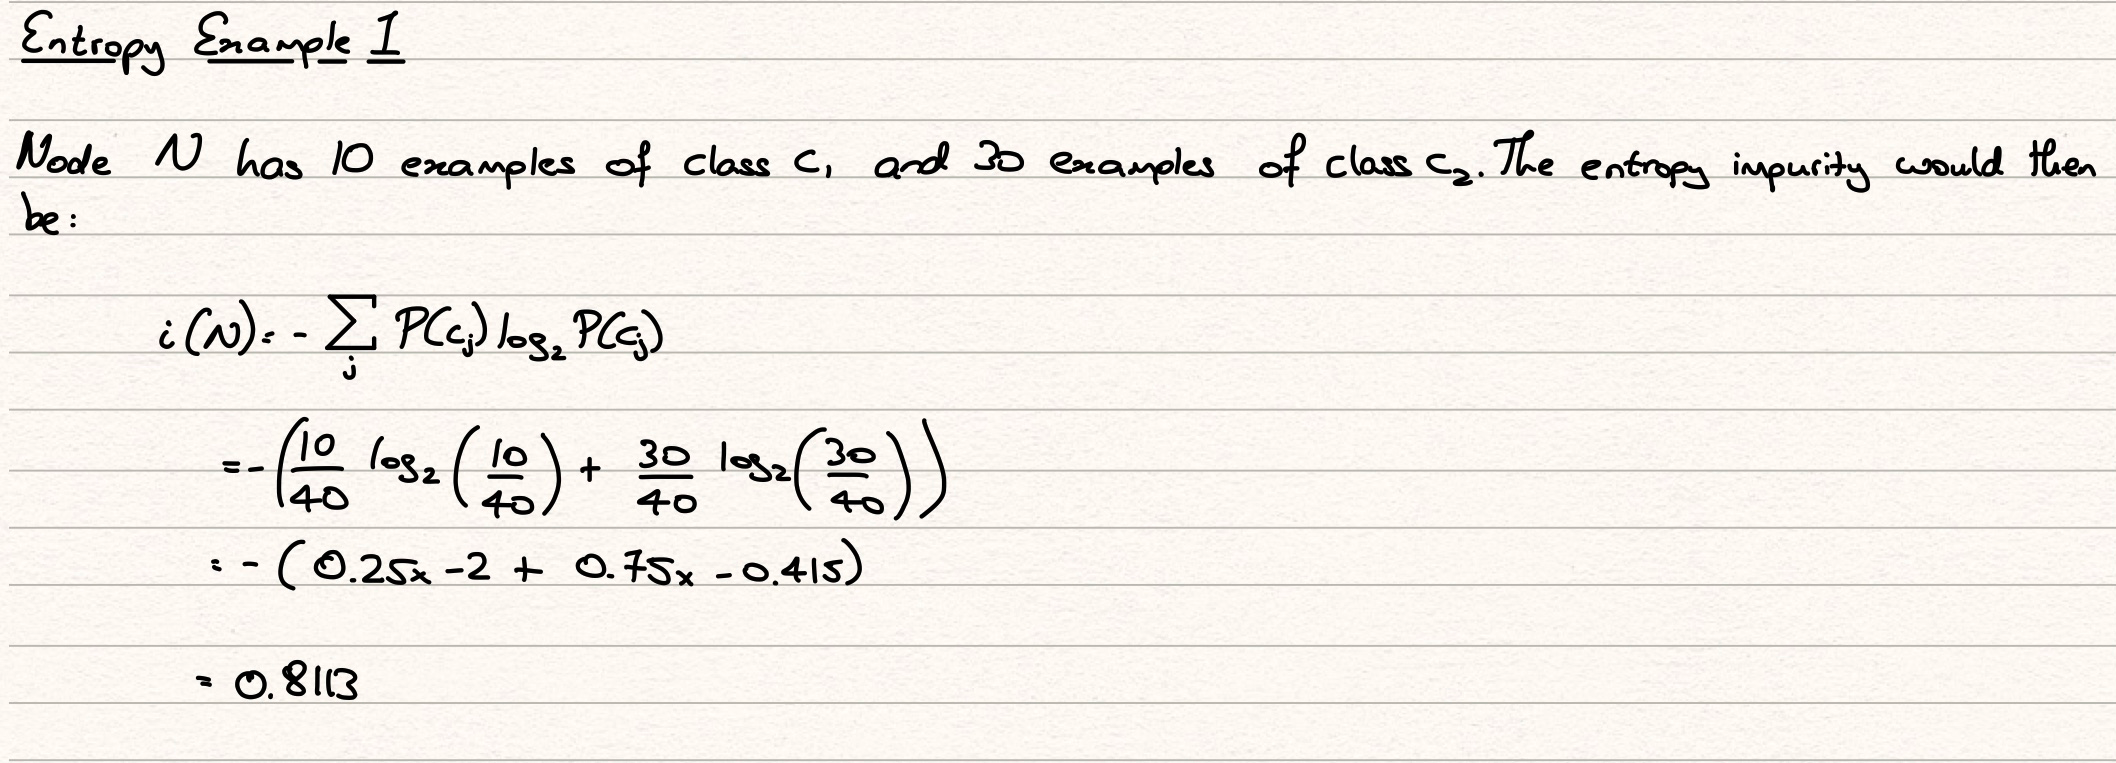 Entropy Example 1
Node N has 10 examples of class c₁ and 30 examples of class c₂. The entropy impurity would then
be:
i(N) = - ∑_j P(c_j) log₂ P(c_j)
= -(10/40 log₂(10/40) + 30/40 log₂(30/40))
= -(0.25x -2 + 0.75x -0.415)
= 0.8113